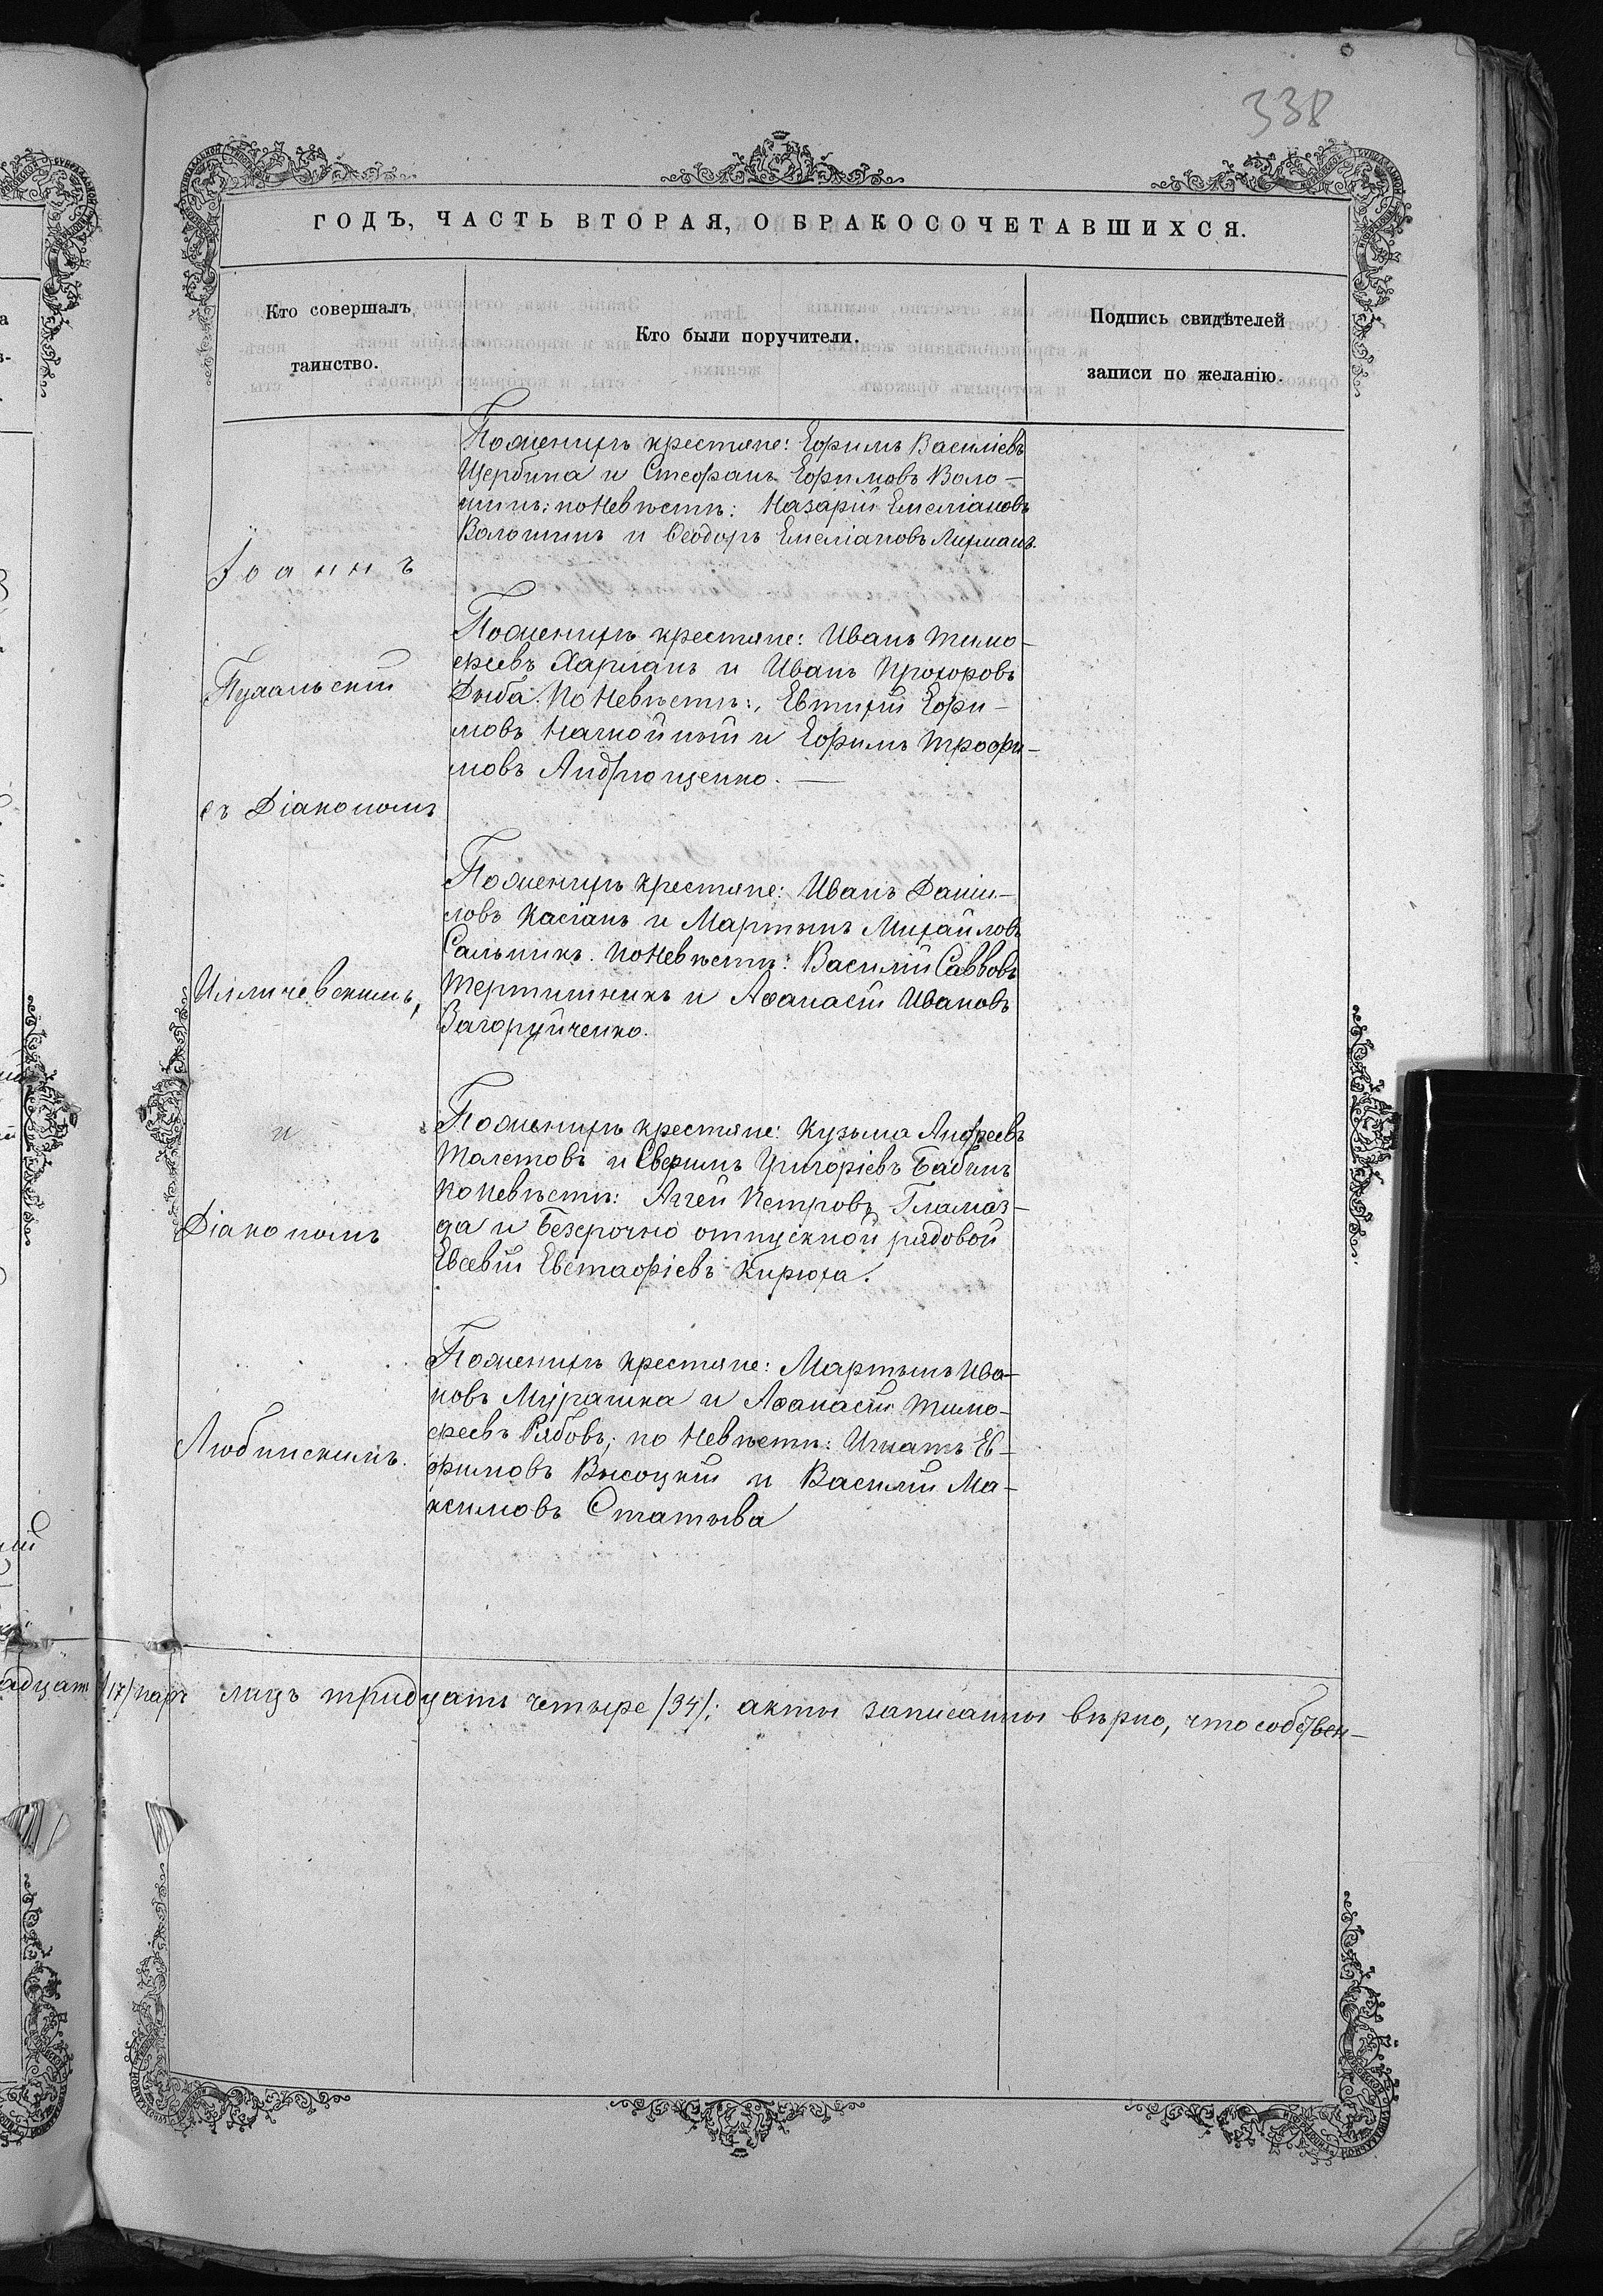 338
ГОДЪ, ЧАСТЬ ВТОРАЯ, О БРАКОСОЧЕТАВШИХСЯ.
Кто совершалъ
таинство.
Кто были поручители.
Подпись свидѣтелей
записи по желанію.
Іоаннъ
съ Діакономъ
Илличевскимъ,
и
Діакономъ
Любинскимъ.
По женихѣ крестяне: Ефимъ Василіевъ
Щербина и Стефанъ Ефимовъ Воло-
шинъ; по невѣстѣ: Назарій Емеліановъ
Волошинъ и Феодоръ Емеліановъ Лихманъ.
По женихѣ крестяне: Иванъ Тимо-
феевъ Харланъ и Иванъ Прохоровъ
Дзюба. По невѣстѣ: Евтихій Ефи-
мовъ и Ефимъ Трофи-
мовъ Андрющенко. —
По женихѣ крестяне: Иванъ Даніи-
ловъ Касіанъ и Мартынъ Михайловъ
Сальникъ. По невѣстѣ: Василій Саввовъ
Тертишникъ и Афанасій Ивановъ
Загоруйченко.
По женихѣ крестяне: Кузьма Андреевъ
Толстовъ и Григоріевъ Бабичъ
По невѣстѣ: Аггей Петровъ Гламаз-
да и безсрочно отпускной рядовой
Евсевій Евстафіевъ Кирюха.
По женихѣ крестяне: Мартынъ Ива-
новъ Мурашка и Афанасій Тимо-
феевъ Рябовъ; по невѣстѣ: Игнатъ Ев-
фимовъ Высоцкій и Василій Ма-
ксимовъ Статыва
/17/ паръ лицъ тридцать четыре /34/; акты записанны вѣрно, что собствен-